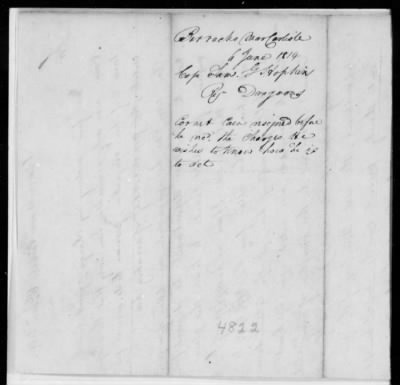 Barracks Near Carlisle
6 June 1814
Cap Sam. G Hopkins
Dragoons
Cornet Cain resigned before
he rec'd the charges He
wishes to know how he is
to act
4822